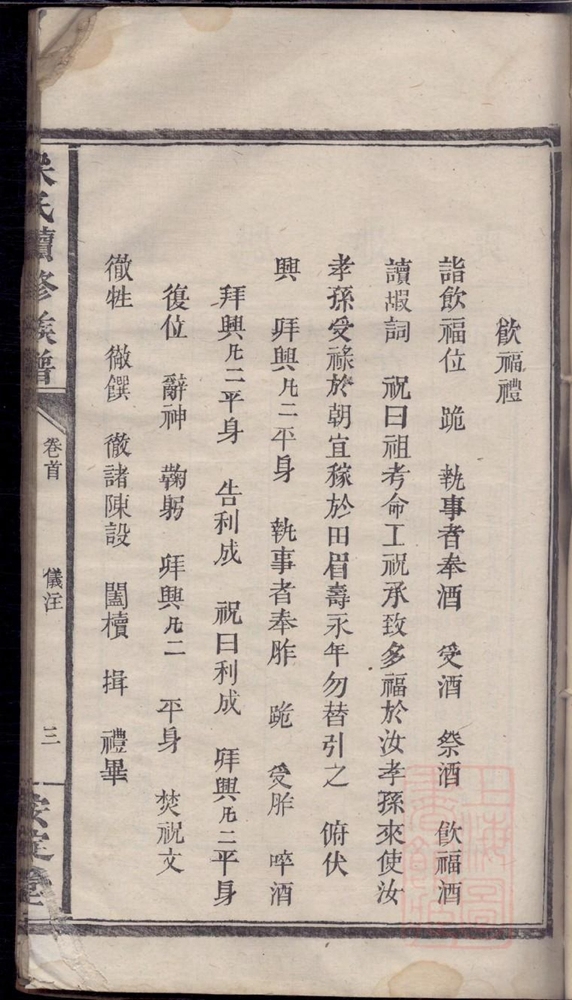 飲福禮
詣飲福位 跪 執事者奉酒 受酒 祭酒 飲福酒
讀嘏詞 祝曰祖考命工祝承致多福於汝孝孫來使汝
孝孫受祿於朝宜稼於田眉壽永年勿替引之 俯伏
興 拜興凡二平身 執事者奉胙 跪 受胙 啐酒
拜興凡二平身 告利成 祝曰利成 拜興凡二平身
復位 辭神 鞠躬 拜興凡二 平身 焚祝文
徹牲 徹饌 徹諸陳設 闔櫝 揖 禮畢
氏續修族譜
卷首
儀注
三
安定堂
上海圖書館藏